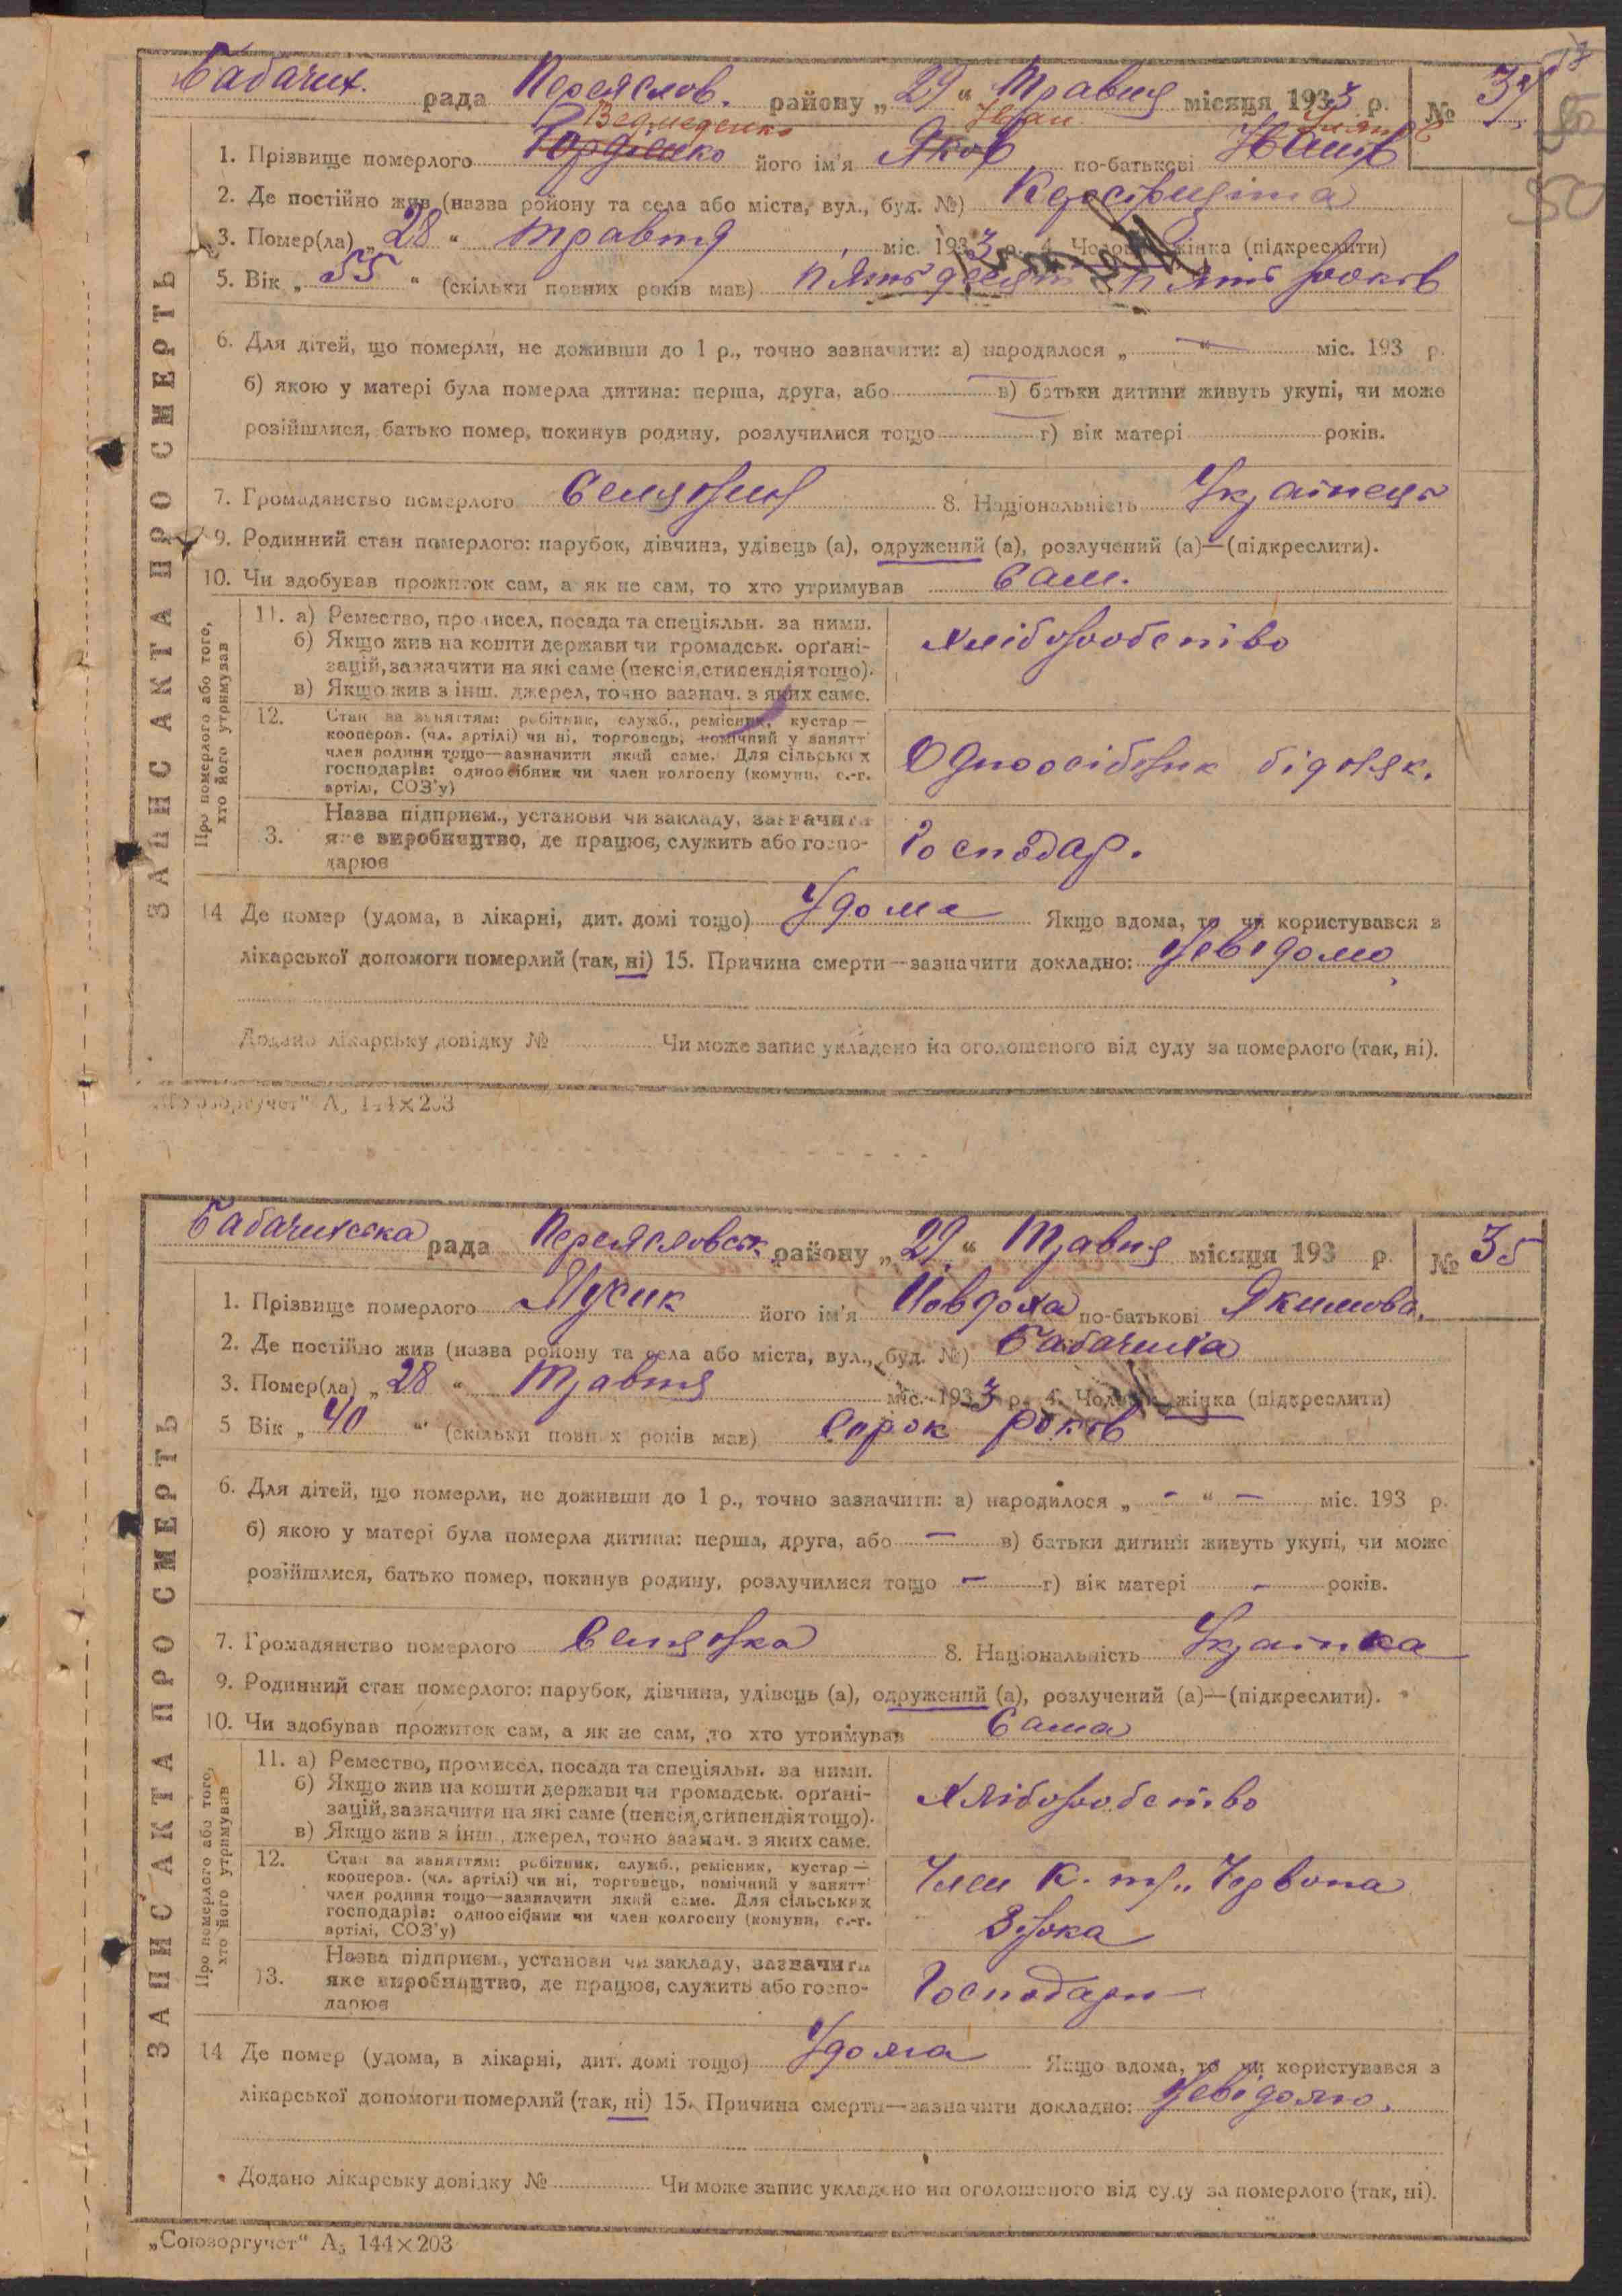 Бабачих. рада Переяслов. району „29“ Травня місяця 1933 р. № 34
Ведмеденко Іван
1. Прізвище померлого Гордієнко його ім'я Яков по-батькові Іванов
2. Де постійно жив (назва району та села або міста, вул., буд. №)
3. Помер(ла) „28“ травня міс. 1933 р. 4. Чоловік жінка (підкреслити)
5. Вік „55“ (скільки повних років мав) пять десят пять років
6. Для дітей, що померли, не доживши до 1 р., точно зазначити: а) народилося „ — “ міс. 193 р.
б) якою у матері була померла дитина: перша, друга, або — в) батьки дитини живуть укупі, чи може
розійшлися, батько помер, покинув родину, розлучилися тощо — г) вік матері років.
7. Громадянство померлого Селянин 8. Національність Українець
9. Родинний стан померлого: парубок, дівчина, удівець (а), одружений (а), розлучений (а)—(підкреслити).
10. Чи здобував прожиток сам, а як не сам, то хто утримував Сам.
ЗАПИС АКТА ПРО СМЕРТЬ
Про померлого або того, хто його утримував
11. а) Ремество, промисел, посада та спеціяльн. за ними.
б) Якщо жив на кошти держави чи громадськ. орґані-
зацій, зазначити на які саме (пенсія, стипендія тощо).
в) Якщо жив з інш. джерел, точно зазнач. з яких саме.
хліборобство
12. Стан за заняттям: робітник, служб., ремісник, кустар—
кооперов. (чл. артілі) чи ні, торговець, помічний у занятт
член родини тощо—зазначити який саме. Для сільських
господарів: одноосібник чи член колгоспу (комуни, с.-г.
артілі, СОЗ'у)
Одноосібник бідняк.
3. Назва підприєм., установи чи закладу, зазначити
яке виробництво, де працює, служить або госпо-
дарює
Господар.
14 Де помер (удома, в лікарні, дит. домі тощо) Удома Якщо вдома, то чи користувався з
лікарської допомоги померлий (так, ні) 15. Причина смерти—зазначити докладно: Невідомо
Додано лікарську довідку № Чи може запис укладено на оголошеного від суду за померлого (так, ні).
„Союзоргучет“ А5 144×203
Бабачихська рада Переясловськ району „29“ Травня місяця 193 р. № 35
1. Прізвище померлого Мусик його ім'я Йовдоха по-батькові Якимова.
2. Де постійно жив (назва району та села або міста, вул., буд. №) Бабачиха
3. Помер(ла) „28“ Травня міс. 1933 р. 4. Чоловік жінка (підкреслити)
5 Вік „40“ (скільки повних років мав) Сорок років
6. Для дітей, що померли, не доживши до 1 р., точно зазначити: а) народилося „ - “ — міс. 193 р.
б) якою у матері була померла дитина: перша, друга, або — в) батьки дитини живуть укупі, чи може
розійшлися, батько помер, покинув родину, розлучилися тощо — г) вік матері - років.
7. Громадянство померлого Селянка 8. Національність Українка
9. Родинний стан померлого: парубок, дівчина, удівець (а), одружений (а), розлучений (а)—(підкреслити).
10. Чи здобував прожиток сам, а як не сам, то хто утримував Сама
ЗАПИС АКТА ПРО СМЕРТЬ
Про померлого або того, хто його утримував
11. а) Ремество, промисел, посада та спеціяльн. за ними.
б) Якщо жив на кошти держави чи громадськ. орґані-
зацій, зазначити на які саме (пенсія, стипендія тощо).
в) Якщо жив з інш., джерел, точно зазнач. з яких саме.
Хліборобство
12. Стан за заняттям: робітник, служб., ремісник, кустар—
кооперов. (чл. артілі) чи ні, торговець, помічний у занятт
член родини тощо—зазначити який саме. Для сільських
господарів: одноосібник чи член колгоспу (комуни, с.-г.
артілі, СОЗ'у)
Член к. гр. „Червона
Зірка
13. Назва підприєм., установи чи закладу, зазначити
яке виробництво, де працює, служить або госпо-
дарює
Господари
14 Де помер (удома, в лікарні, дит. домі тощо) Удома Якщо вдома, то чи користувався з
лікарської допомоги померлий (так, ні) 15. Причина смерти—зазначити докладно: Невідомо.
Додано лікарську довідку № Чи може запис укладено на оголошеного від суду за померлого (так, ні).
„Союзоргучет“ А5 144×203